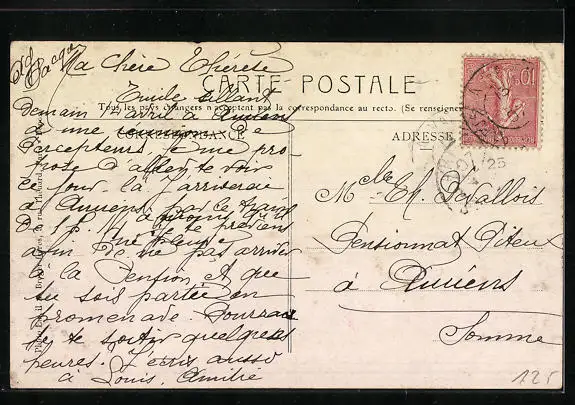 Ma chère Thérèse
CARTE POSTALE
Tous les pays étrangers n'acceptent pas la correspondance au recto. (Se renseigner
CORRESPONDANCE
ADRESSE
Emile allant
demain 4 avril à Amiens
à une de
Percepteurs, je me pro
pose d'aller te voir
ce jour là J'arriverai
à Amiens par le train
De 1h je te préviens
afin De ne pas arriver
à la Pension et que
tu sois partie en
promenade. Pourrai
je te sortir quelques
heures. J'écris aussi
à Louis, Amitié
Mlle Th. Devallois
Pensionnat
à Amiens
Somme
10
125